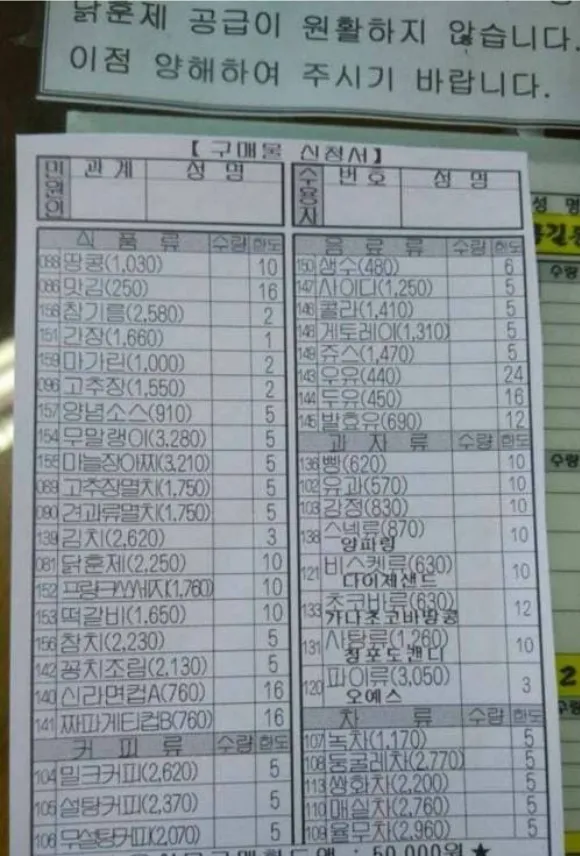 닭훈제 공급이 원활하지 않습니다.
이점 양해하여 주시기 바랍니다.
【구매물 신청서】
민원인 관계 성명
수용자 번호 성명
식품류 수량 한도
088 땅콩(1,030) 10
086 맛김(250) 16
158 참기름(2,580) 2
151 간장(1,660) 1
159 마가린(1,000) 2
096 고추장(1,550) 2
157 양념소스(910) 5
154 무말랭이(3,280) 5
155 마늘장아찌(3,210) 5
089 고추장멸치(1,750) 5
090 견과류멸치(1,750) 5
139 김치(2,620) 3
081 닭훈제(2,250) 10
152 프랑크쏘세지(1,760) 10
153 떡갈비(1,650) 10
156 참치(2,230) 5
142 꽁치조림(2,130) 5
140 신라면컵A(760) 16
141 짜파게티컵B(760) 16
커피류 수량 한도
104 밀크커피(2,620) 5
105 설탕커피(2,370) 5
106 무설탕커피(2,070) 5
음료류 수량 한도
150 생수(480) 6
147 사이다(1,250) 5
146 콜라(1,410) 5
148 게토레이(1,310) 5
149 쥬스(1,470) 5
143 우유(440) 24
144 두유(450) 16
145 발효유(690) 12
과자류 수량 한도
136 빵(620) 10
102 유과(570) 10
103 강정(830) 10
138 스넥류(870) 10
양파링
121 비스켓류(630) 10
다이제샌드
133 초코바류(630) 12
가나초코바땅콩
131 사탕류(1,260) 10
청포도캔디
120 파이류(3,050) 3
오예스
차류 수량 한도
107 녹차(1,170) 5
108 둥굴레차(2,770) 5
113 쌍화차(2,200) 5
110 매실차(2,760) 5
109 율무차(2,960) 5
: 50,000원★
성명
수량
수량
2
수량